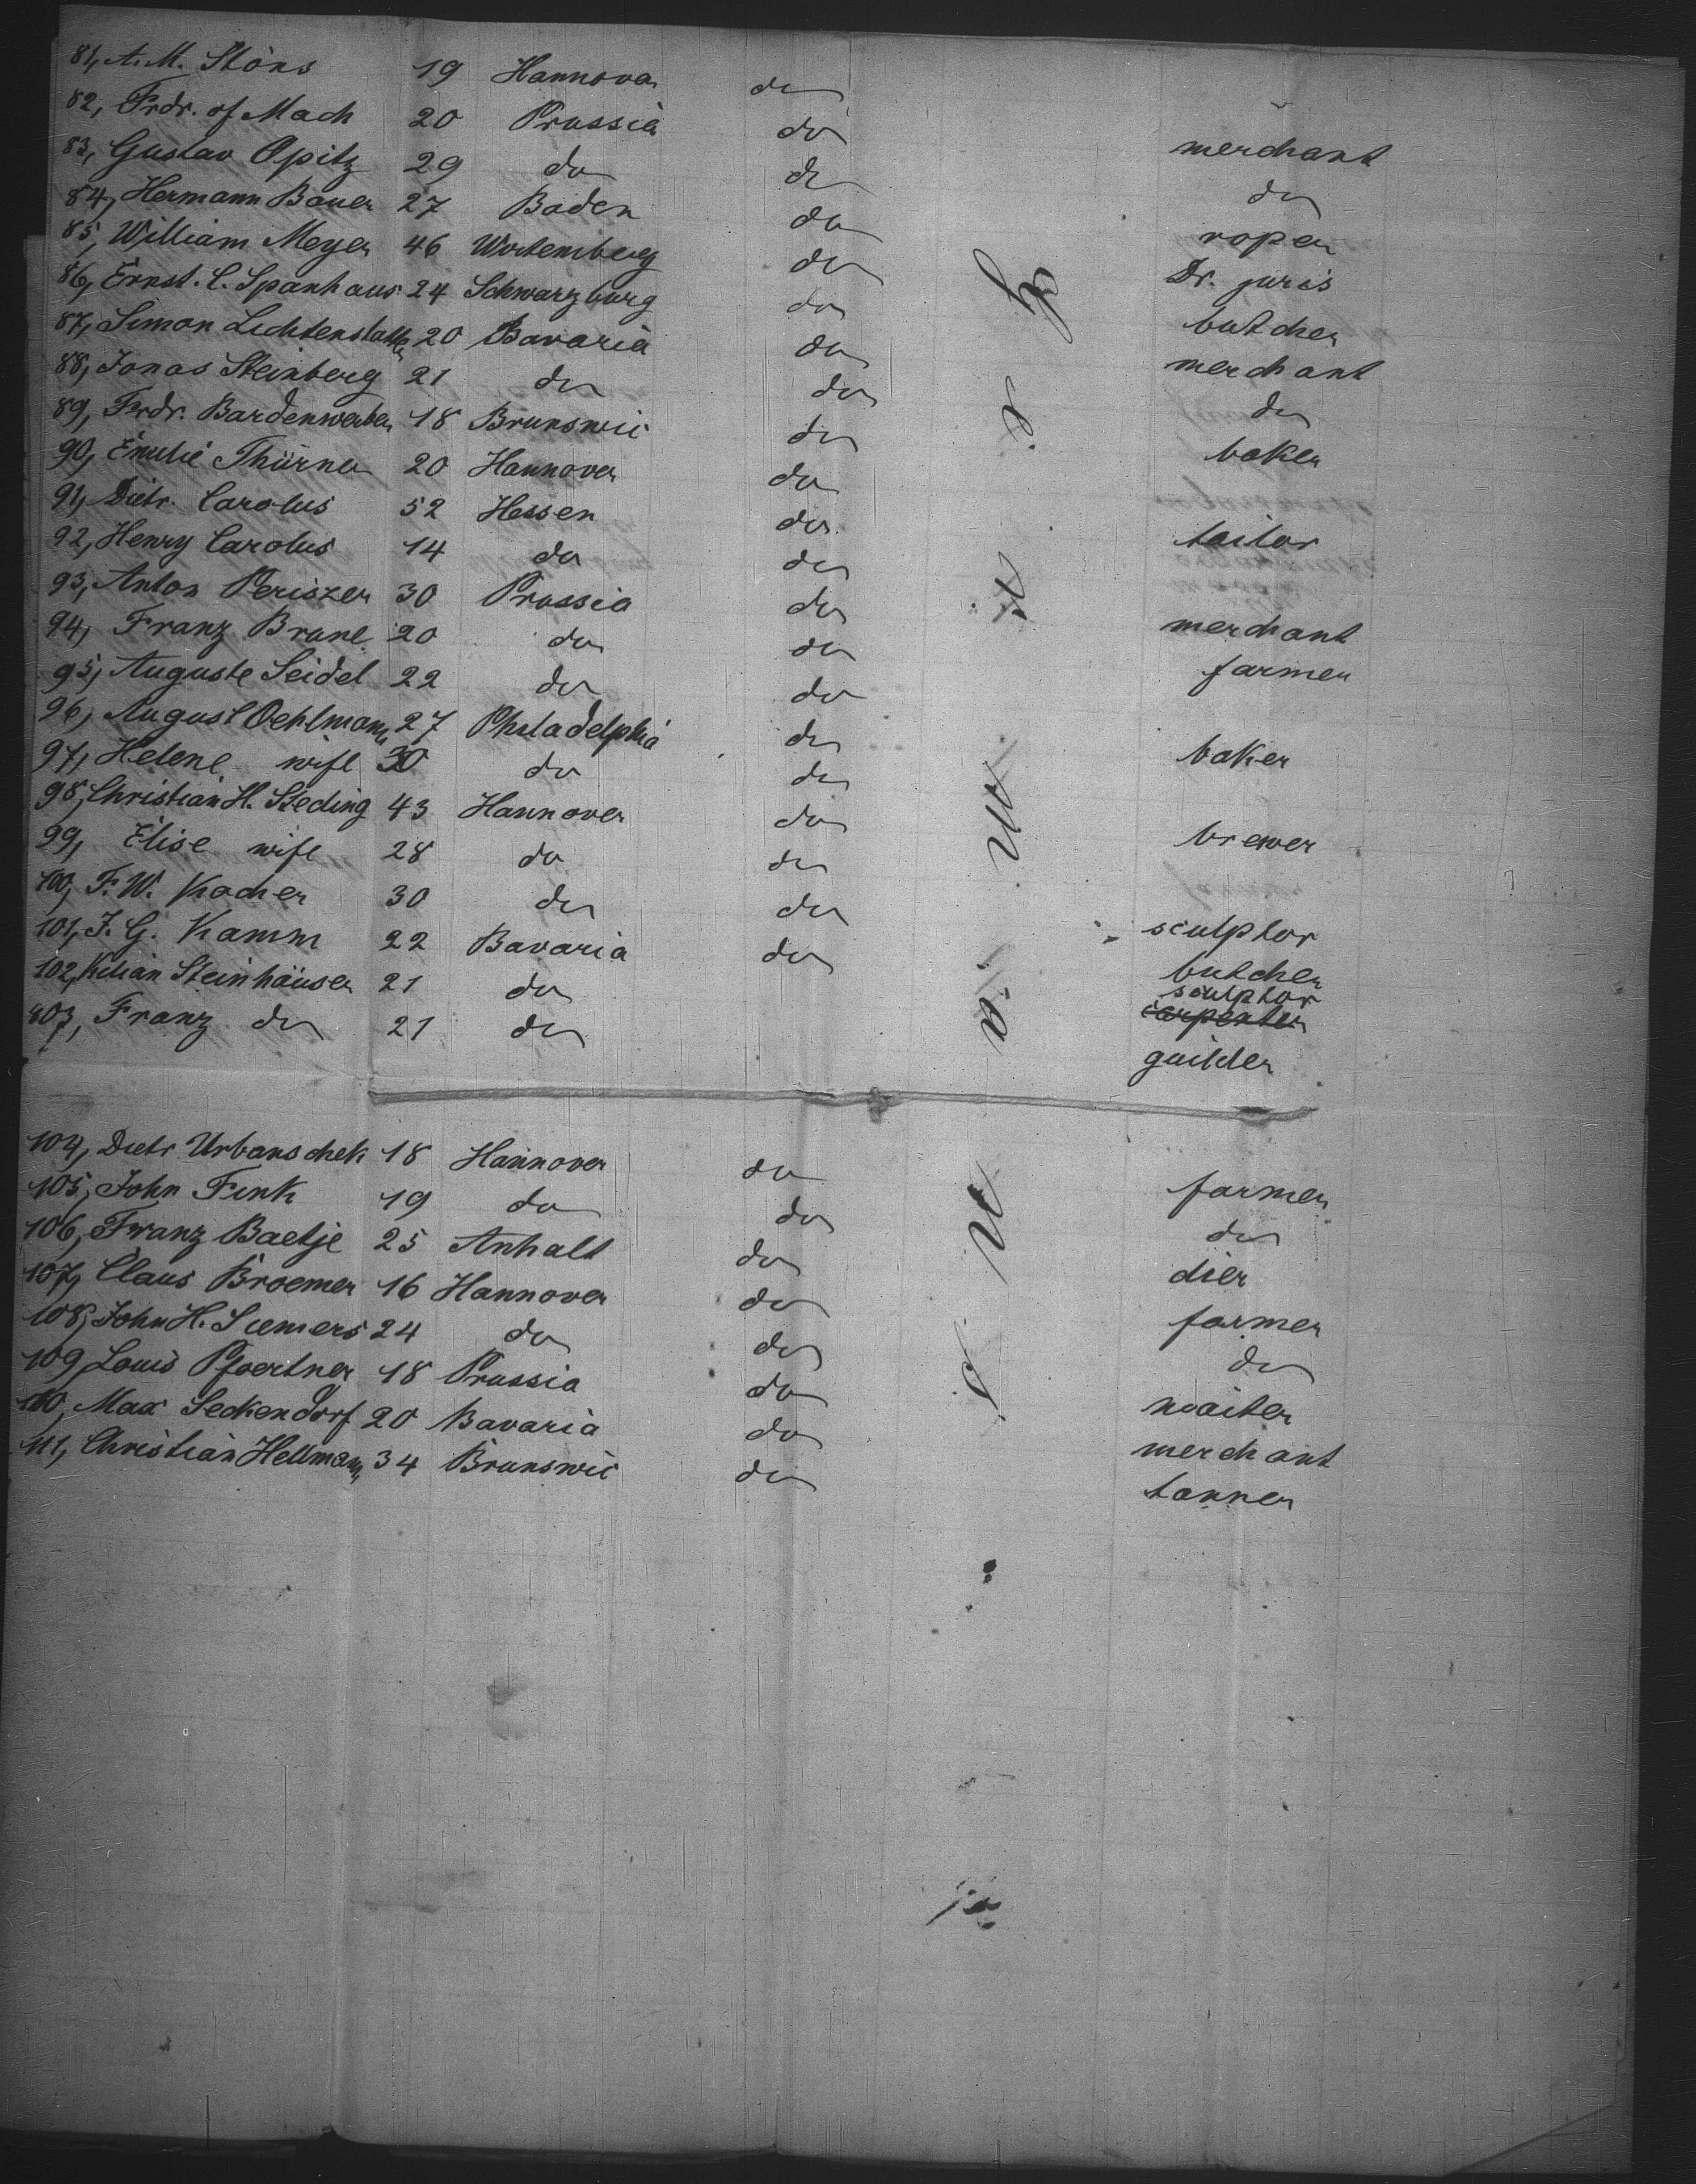 81, A. M. Stöns 19 Hannover do
82, Frdr. of Mach 20 Prussia do merchant
83, Gustav Opitz 29 do do do
84, Hermann Bauer 27 Baden do roper
85, William Meyer 46 Wurtemberg do Dr. juris
86, Ernst. C. Spanhaus 24 Schwarzburg do butcher
87, Simon Lichtenstatter 20 Bavaria do merchant
88, Jonas Steinberg 21 do do do
89, Frdr. Bardenwerber 18 Brunswic do baker
90, Emilie Thürner 20 Hannover do
91, Dietr. Carolus 52 Hessen do tailor
92, Henry Carolus 14 do do
93, Anton Periszer 30 Prussia do merchant
94, Franz Brune 20 do do farmer
95, Auguste Seidel 22 do do
96, August Oehlmann 27 Philadelphia do baker
97, Helene wife 30 do do
98, Christian H. Steding 43 Hannover do brewer
99, Elise wife 28 do do
100, F. W. Kocher 30 do do sculptor
101, J. G. Kamm 22 Bavaria do butcher
102, Kilian Steinhäuser 21 do sculptor carpenter
103, Franz do 21 do guilder
104, Dietr Urbanschek 18 Hannover do farmer
105, John Fink 19 do do do
106, Franz Baetje 25 Anhalt do dier
107, Claus Broemer 16 Hannover do farmer
108, John H. Siemers 24 do do do
109, Louis Pfoertner 18 Prussia do waiter
110, Max Seckendorf 20 Bavaria do merchant
111, Christian Hellmann 34 Brunswic do tanner